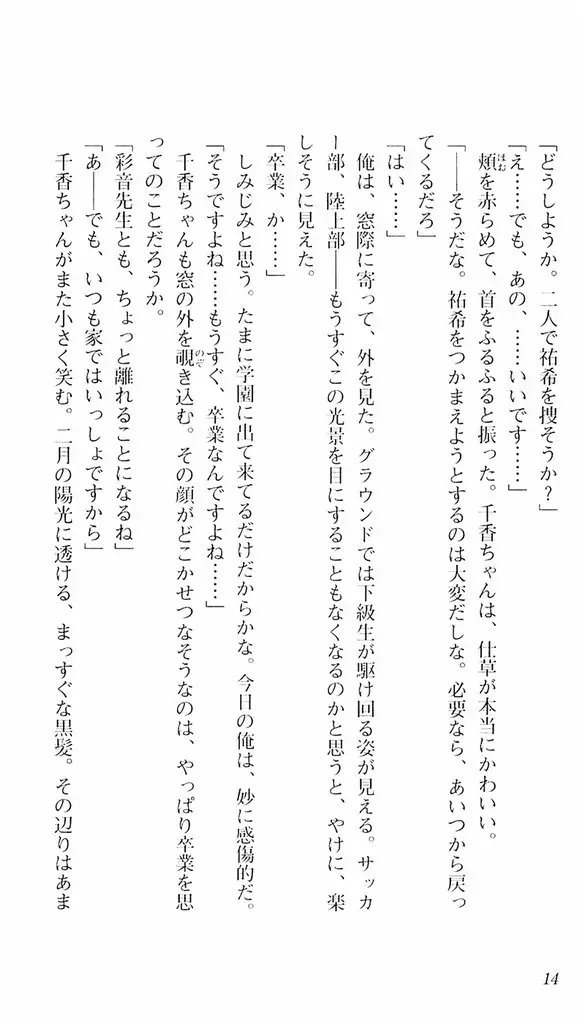 「どうしようか。二人で祐希を捜そうか?」
「え……でも、あの、……いいです……」
頬を赤らめて、首をふるふると振った。千香ちゃんは、仕草が本当にかわいい。
ほお
「――そうだな。祐希をつかまえようとするのは大変だしな。必要なら、あいつから戻っ
てくるだろ」
「はい……」
俺は、窓際に寄って、外を見た。グラウンドでは下級生が駆け回る姿が見える。サッカ
ー部、陸上部――もうすぐこの光景を目にすることもなくなるのかと思うと、やけに、楽
しそうに見えた。
「卒業、か……」
しみじみと思う。たまに学園に出て来てるだけだからかな。今日の俺は、妙に感傷的だ。
「そうですよね……もうすぐ、卒業なんですよね……」
千香ちゃんも窓の外を覗き込む。その顔がどこかせつなそうなのは、やっぱり卒業を思
のぞ
ってのことだろうか。
「彩音先生とも、ちょっと離れることになるね」
「あ――でも、いつも家ではいっしょですから」
千香ちゃんがまた小さく笑む。二月の陽光に透ける、まっすぐな黒髪。その辺りはあま
14